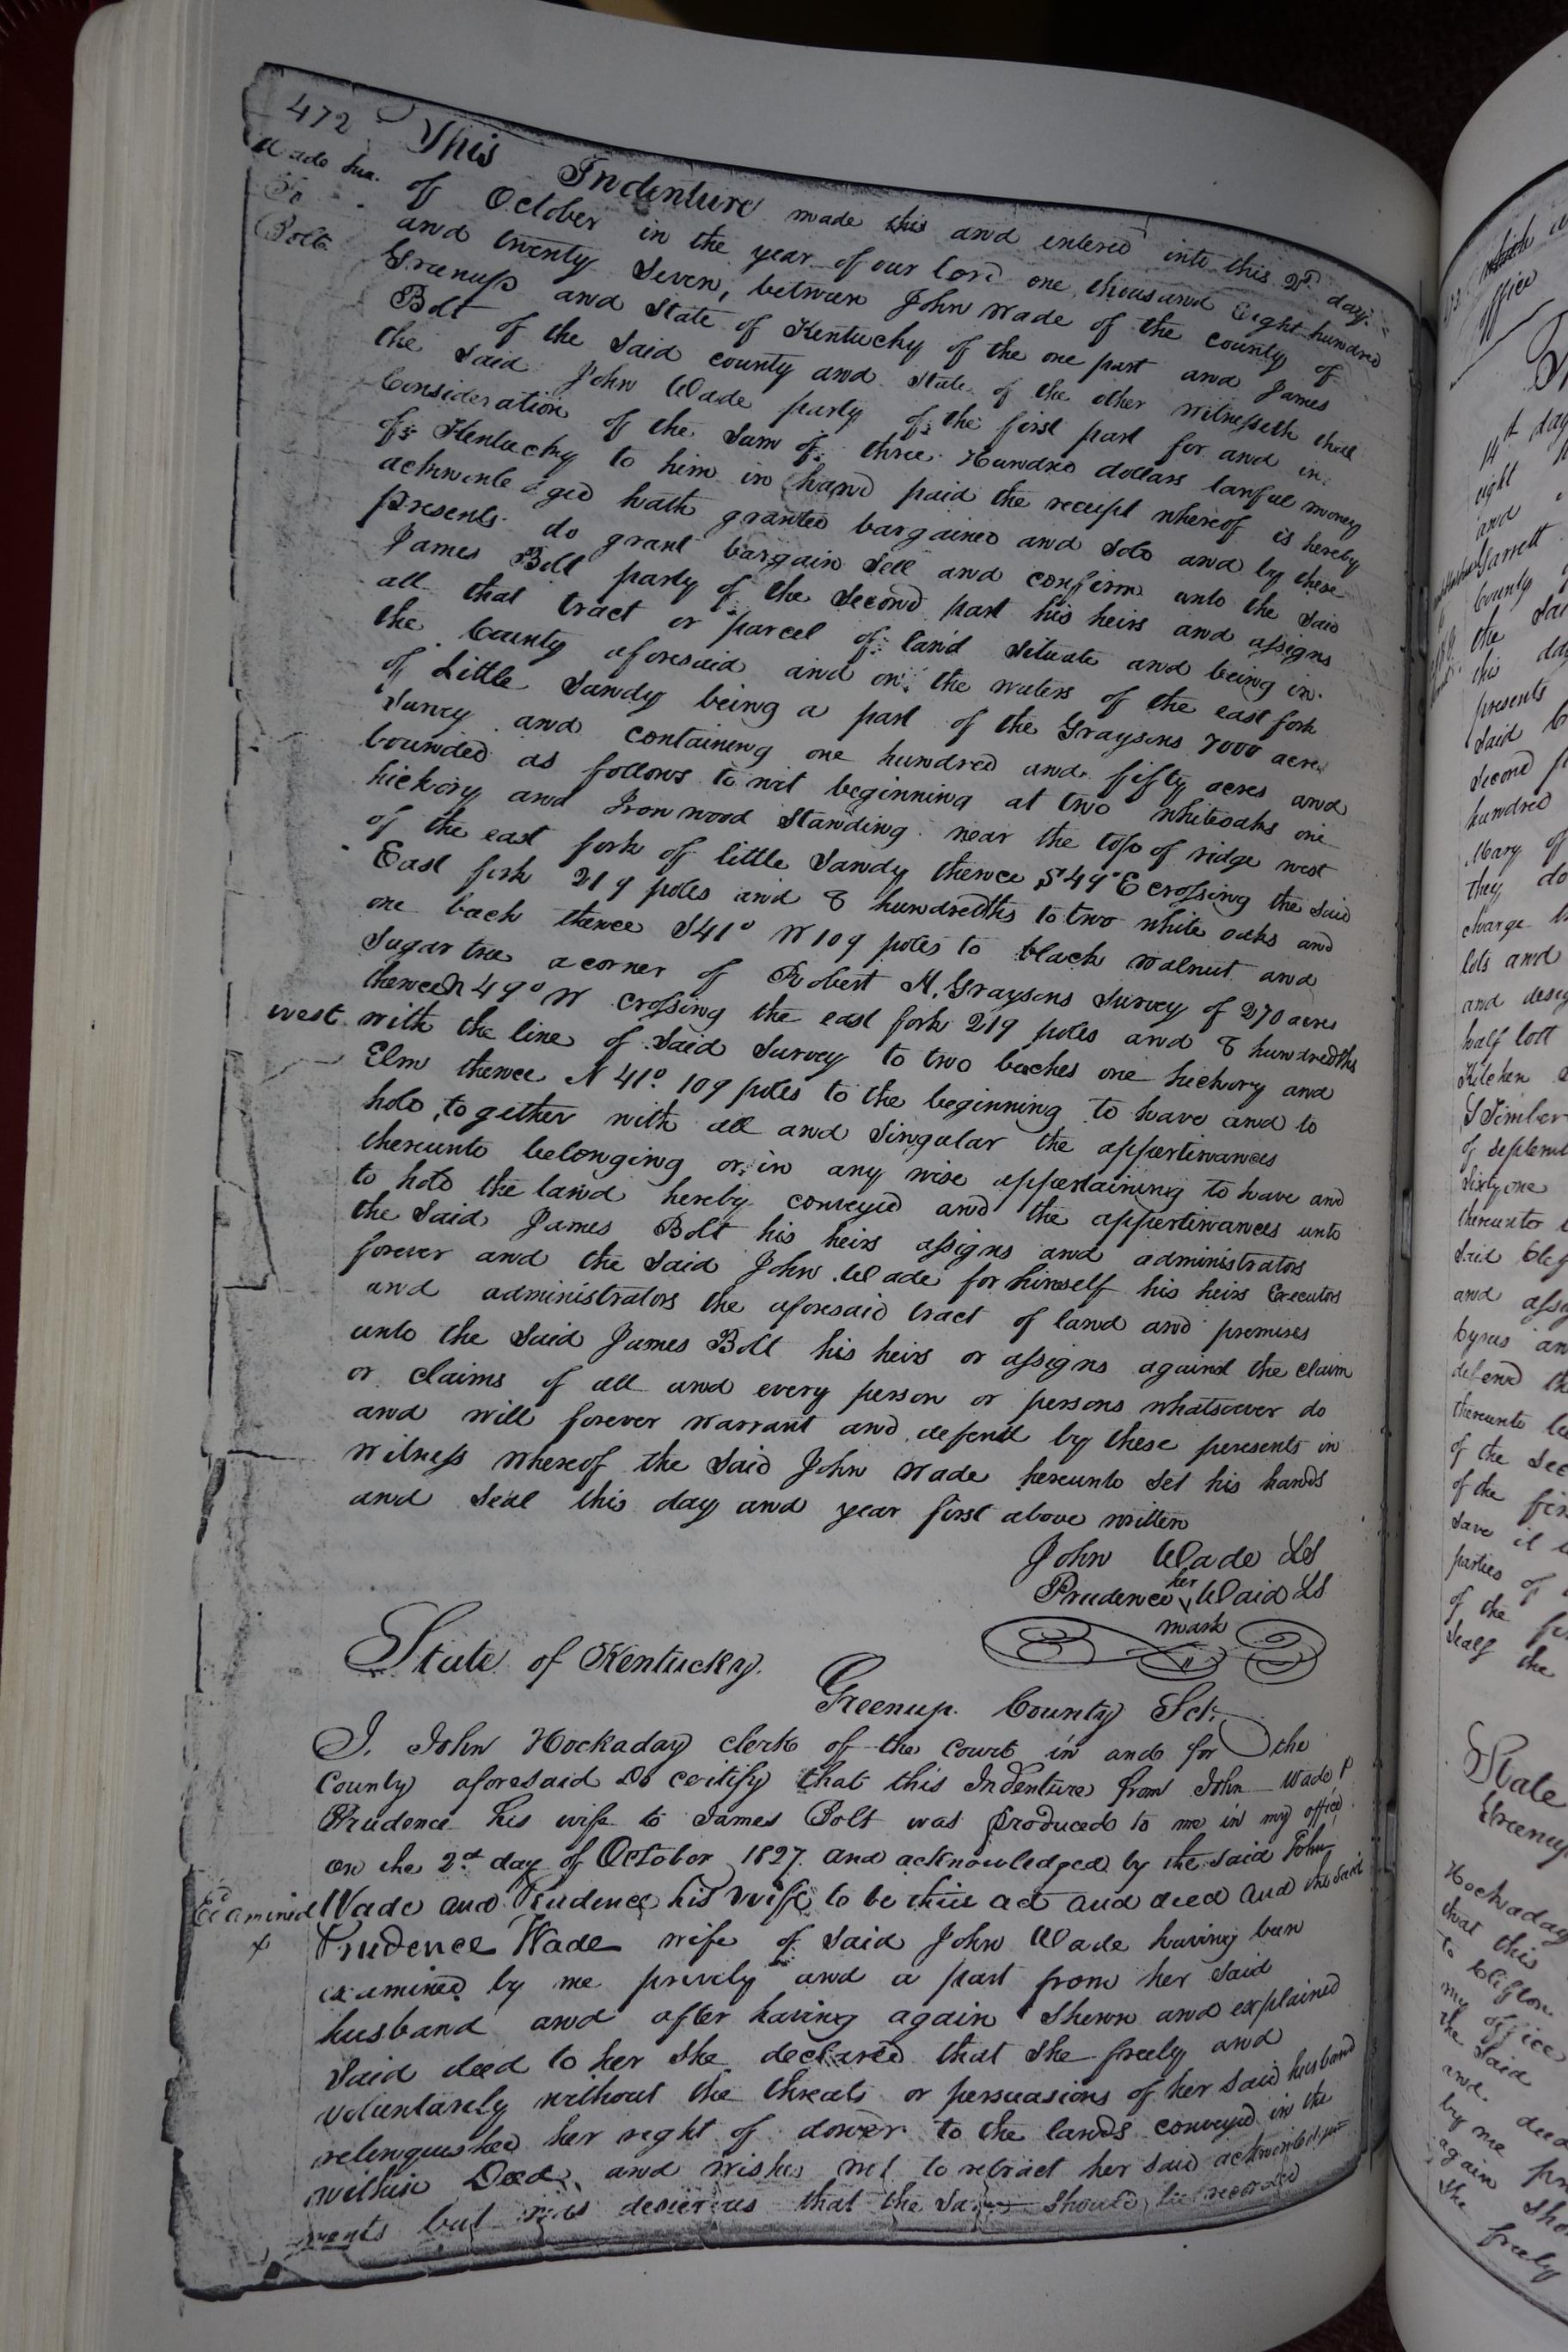 472
Wade & ux.
To
Bolt
This Indenture made this and entered into this 2d day
of October in the year of our Lord one thousand Eight hundred
and twenty Seven, between John Wade of the county of
Greenup and State of Kentucky of the one part and James
Bolt of the Said county and State of the other witnesseth that
the Said John Wade party of the first part for and in
Consideration of the Sum of three Hundred dollars lawful money
of Kentucky to him in hand paid the receipt whereof is hereby
acknowledged hath granted bargained and Sold and by these
presents do grant bargain Sell and confirm unto the Said
James Bolt party of the Second part his heirs and assigns
all that tract or parcel of land Situate and being in
the County aforesaid and on the waters of the east fork
of Little Sandy being a part of the Graysons 7000 acre
Survey and containing one hundred and fifty acres and
bounded as follows to wit beginning at two whiteoaks one
hickory and Ironwood Standing near the top of ridge west
of the east fork of little Sandy thence S49°E crossing the Said
East fork 219 poles and 8 hundredths to two white oaks and
one bach thence S41° W 109 poles to black walnut and
Sugar tree a corner of Robert H. Graysons Survey of 270 acres
thence N 49° W crossing the east fork 219 poles and 8 hundredths
west with the line of Said Survey to two baches one hickory and
Elm thence N 41° 109 poles to the beginning to have and to
hold together with all and Singular the appertinances
thereunto belonging or in any wise appertaining to have and
to hold the land hereby conveyed and the appertinances unto
the Said James Bolt his heirs assigns and administrators
forever and the Said John Wade for himself his heirs Executors
and administrators the aforesaid tract of land and premises
unto the Said James Bolt his heirs or assigns against the claim
or claims of all and every person or persons whatsoever do
and will forever warrant and defend by these presents in
Witness whereof the Said John Wade hereunto Set his hands
and Seal this day and year first above written
John Wade LS
her
Prudence Waid LS
mark
State of Kentucky.
Greenup County Sct.
I, John Hockaday clerk of the Court in and for the
County aforesaid Do certify that this Indenture from John Wade &
Prudence his wife to James Bolt was produced to me in my office
on the 2d day of October 1827 and acknowledged by the said John
Examined Wade and Prudence his wife to be their act and deed and the said
x Prudence Wade wife of Said John Wade having been
examined by me privily and a part from her Said
husband and after having again Shewn and explained
Said deed to her She declared that She freely and
voluntarely without the threats or persuasions of her Said husband
relinquished her right of dower to the lands conveyed in the
within Deed and wishes not to retract her Said acknowledge
ments but was desierous that the Same Should be recorded
office
14th day
eight
and
Garrett
County
the Sai
this day
presents
Said
Second
hundred
Mary of
they do
charge
lots and
and desig
half lott
Kitchen
of Septem
Sixty one
thereunto
Said
and assig
Cyrus an
defend th
thereunto be
of the Sec
of the fir
Save it
parties of
of the
Seals the
State
Greenup
Hockaday
that this
to Clifton
my office
the Said
and deed
by me pri
again Sho
She freely